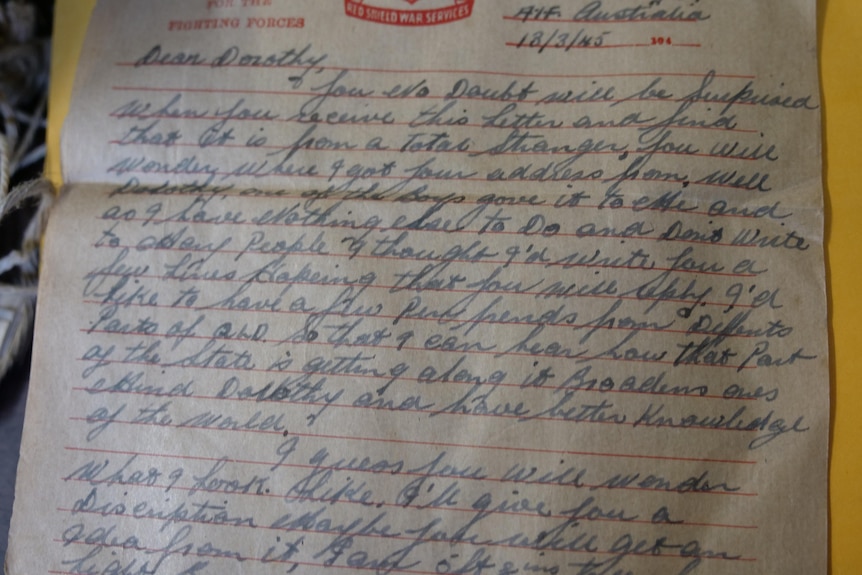 FOR THE
FIGHTING FORCES
RED SHIELD WAR SERVICES
AIF. Australia
13/3/45 194
Dear Dorothy,
You No Doubt will be Surprised
When you receive this letter and find
that it is from a Total Stranger, you will
Wonder, Where I got your address from. Well
Dorothy, one of the boys gave it to Me and
as I have Nothing else to Do and Dont Write
to Many People I thought I'd write you a
few lines Hopeing that you will reply. I'd
like to have a few Pen friends from Differents
Parts of QLD. So that I can hear how that Part
of the State is getting along it Broadens ones
Mind Dorothy and have better Knowledge
of the World.
I guess you will wonder
What I look like. I'll give you a
Discription Maybe you will get an
idea from it, I am 6ft 2 ins